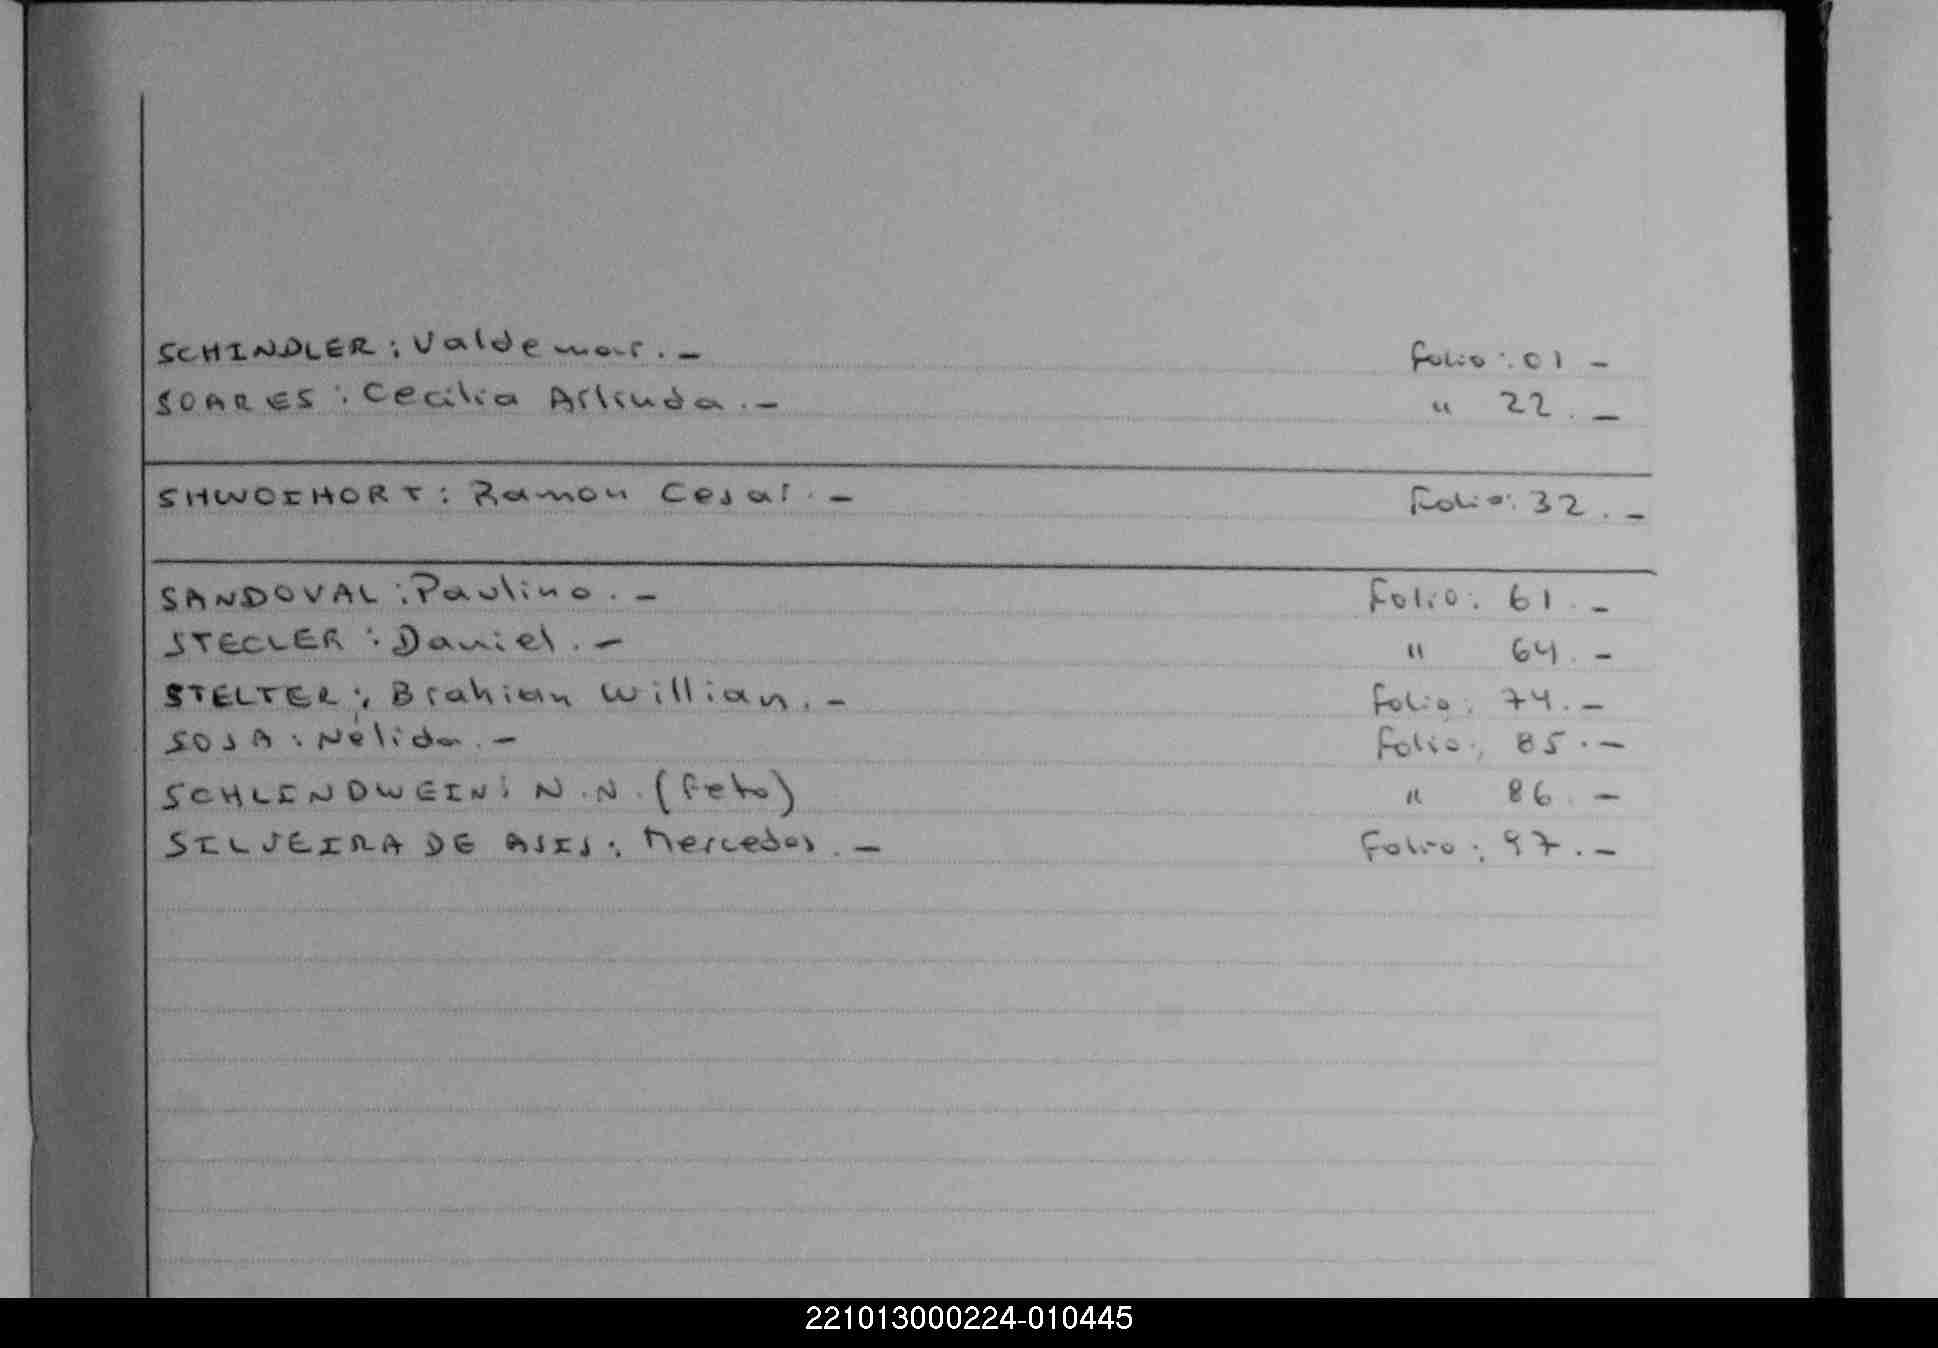 SCHINDLER: Valdemar.- Folio: 01 -
SOARES: Cecilia Arlinda.- " 22.-
SHWOIHORT: Ramon Cesar.- Folio: 32.-
SANDOVAL: Paulino.- Folio: 61.-
STECLER: Daniel.- " 64.-
STELTER: Brahian Willian.- Folio: 74.-
SOSA: Nélida.- Folio: 85.-
SCHLINDWEIN: N.N. (feto) " 86.-
SILVEIRA DE ASIS: Mercedes.- Folio: 97.-
221013000224-010445